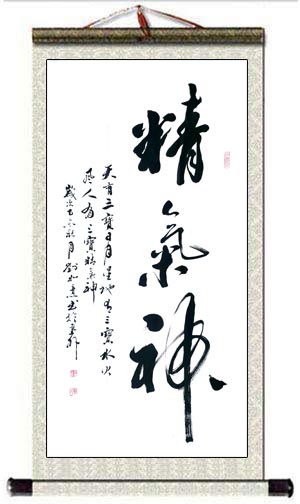 精氣神
天有三寶日月星地有三寶水火
風人有三寶精氣神
歲次秋月劉書於京郊